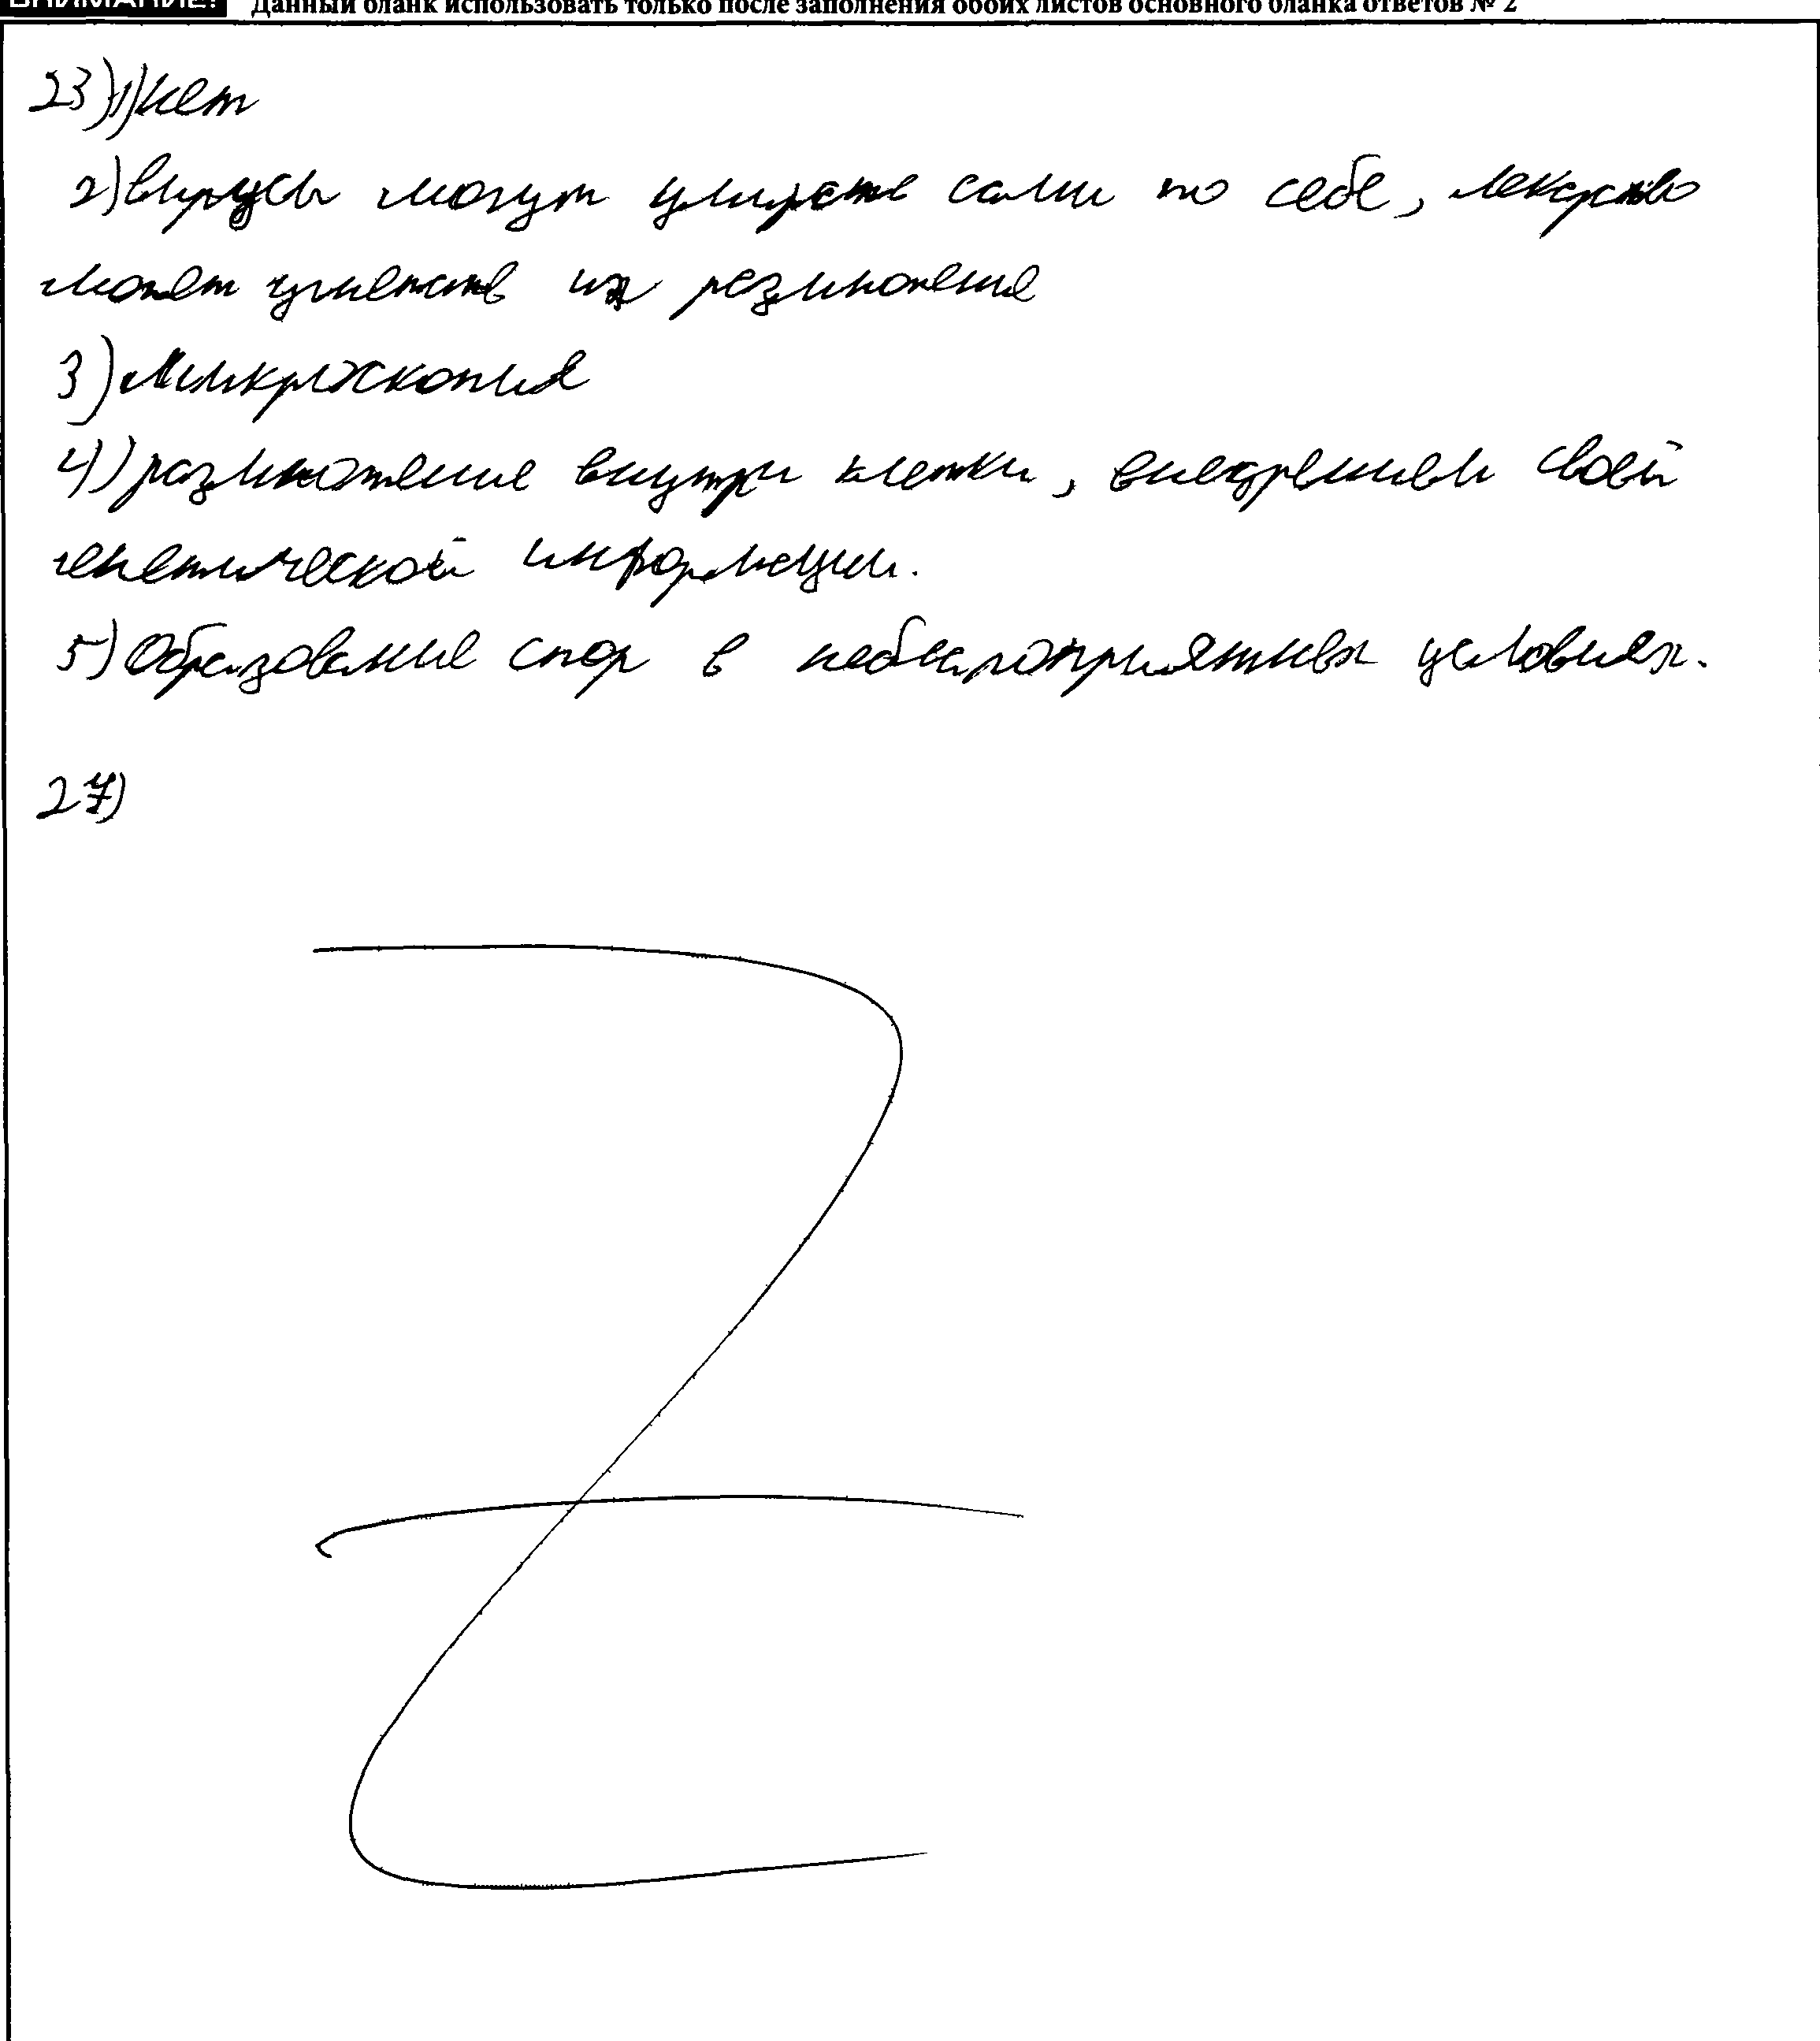 ВНИМАНИЕ! Данный бланк использовать только после заполнения обоих листов основного бланка ответов № 2
23) 1) нет
2) вирусы могут умирать сами по себе, лекарство
может угнетать их размножение
3) Микроскопия
4) размножение внутри клетки, внедрением своей
генетической информации.
5) Образование спор в неблагоприятных условиях.
27)